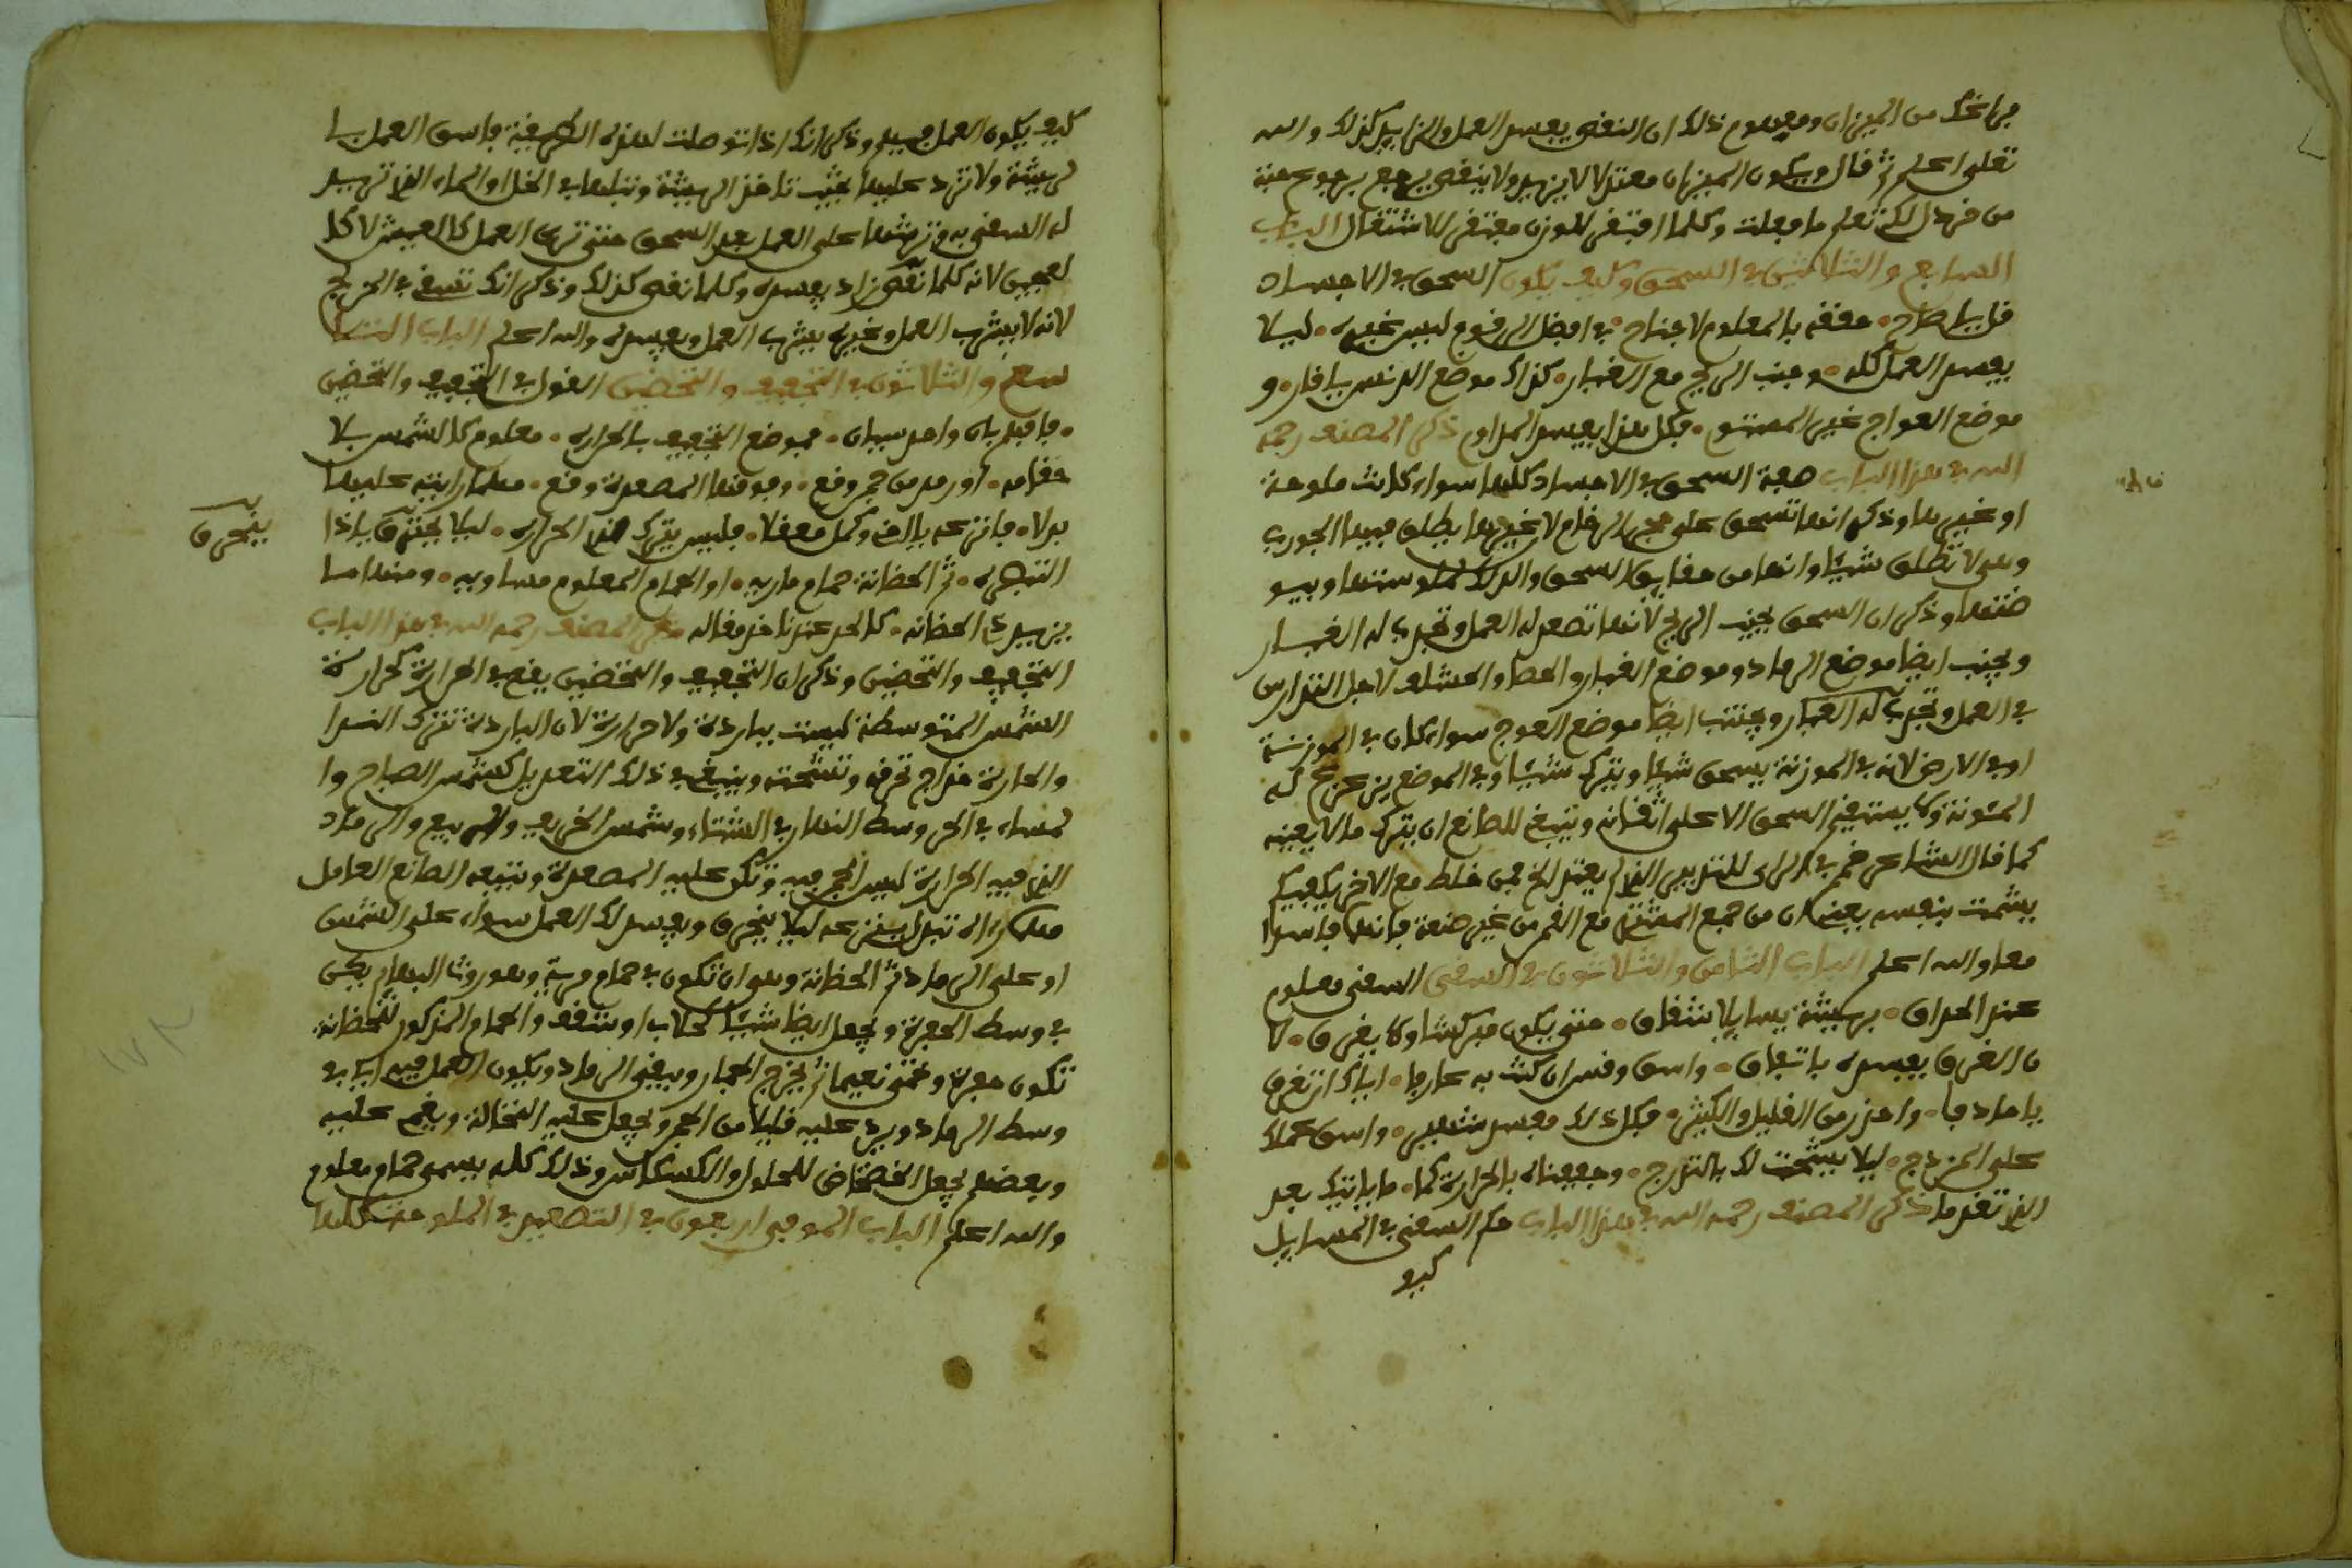 من الميزان ومعهوم ذلك ان النفص يفسد العمل والزايد كذلك والله
تعلى اعلم ثم فال ويكون الميزان معتدلا لا يزيد ولا ينفص يرجع برجوع حبة
من خردل لكي تعلم ما فعلت وكلما افتفى للوزن مفتفى للاشتغال الباب
السابع والثلاثين في السحق وكيف يكون السحق في الاجساد
حففه بالمعلوم لا جناح في افضل الرخوم ليس غيره ليلا
يفسد العمل كله وجنب الريح مع الغبار كذاك موضع الدنس يا فار و
موضع العواج غير المستو فكل هذا يفسد المراد ذكر المصنف رحمه
الله في هذا الباب صفة السحق في الاجساد كلها سواء كانت ملوحة
او غيرها وذكر انها تسحق على حجر الرخام لا غيرها يطلق فيها الجوري
وهو لا تطلق شيئا وانها من حفايق السحق والدلاك لملوستها ويبو
ضتها وذكر ان السحق يجنب الريح لانها تصعد له العمل وتجري له الغبار
ويجنب ايضا موضع الرماد وموضع الغبار والحصا والحشلف لاجل
في العمل وتجري له الغبار ويجتنب ايضا موضع العوج سواء كان في الموزنة
او في الارض لانه في الموزنة يسحق شيئا ويترك شيئا وفي الموضع يزعزع له
السحق الا على اتفانه وينبغي للصانع ان يترك ما لا يعنيه
كما فال الشاعر خمر في الراي للتدبير الذي لم يعتد لا خير من خلط مع الاخر يكفيك
يشمت بنفسه يعني ان من جمع المشتري مع الفمر من غير صنعة فانهما فاسدا
معا والله اعلم الباب الثامن والثلاثون في السفي السفي معلوم
عند الحذاق بريشة يسا يلا شفاق حتى يكون مبركشا ولا يغرق لا
ن الغرق يفسده باتفاق واسق وفسر ان كنت به عارفا اياك ان تغرق
يا صادفا واحذر من الفليل والكثير فكل ذلك مفسد شهير واسق عملك
على المزدج ليلا يشمت لك بالتدرج وجففناه بالحرارة كما ما ياتيك بعد
الذي تفدما ذكر المصنف رحمه الله في هذا الباب حكم السفي في المسايل
كيف
كيف يكون العمل فيه وذكر انك اذا توصلت لهذه الطريفة فاسق العمل با
لريشة ولا تزد عليها بحيث تاخذ الريشة وتبلها في الخل او الماء الذي تريد
له السفي به وترشها على العمل بعد السحق حتى ترى العمل كالعيش لا كا
لعجين لانه كلما نفص زاد يفسده وكلما نفص كذلك وذكر انك تسفي في المزدج
لانه لا يشرب العمل وغيره يشرب العمل ويفسده والله اعلم الباب التا
سع والثلاثون في التجفيف والتحضين الفول في التجفيف والتحضين
فافهم بان واحد سيان فموضع التجفيف بالحرارة معلوم كالشمس بلا
خفامه او رمد من جمر وفع وفوفها المصعدة وفع مهما رايته عليها
بدلا فانزعه بالرفق وكمل معفلا فليس يترك الحرارة ليلا يحترق ياذا
ينحرق
التبصره ثم الحظانة حمام ماريه او الحمام المعلوم مساويه ومنها ما
يزيد في الحظانه كالحر عندنا خذ مفاله ذكر المصنف رحمه الله في هذا الباب
التجفيف والتحضين وذكر ان التجفيف والتحضين يفع في الحرارة كحرارة
الشمس المتوسطة ليست بباردة ولا حرارية لان الباردة تترك الندا
والحارة مزاج تحرفه وتشحته وينبغي في ذلك التعديل كشمس الصباح وا
لمساء في الحر وسط النهار في الشتاء وشمس الخريف والربيع والرماد
الذي فيه الحرارة ليس الجمر فيه وتكو عليه المصعدة وتتبعه الصانع العامل
تبدل ينزعه ليلا ينحرق ويفسد لك العمل سواء على الشمس
او على الرماد ثم الحظانة وهو ان تكون في حمام مرية وهو روث البهايم يكن
في وسط الحفرة ويجعل ايضا شيئا كحلاب او شفف والحمام المذكور للحظانة
تكون حفرة وتحمى نعيما ثم يخرج الجمار ويبفى الرماد ويكون العمل فيه اي في
وسط الرماد ويرد عليه فليلا من الجمر ويجعل عليه النخالة ويغم عليه
وبعضهم يجعل الخضخاض للمحلول والكسكاس وذلك كله يسمى حمام معلوم
والله اعلم الباب الموفي اربعون في التصعيد في الملوحة كلها